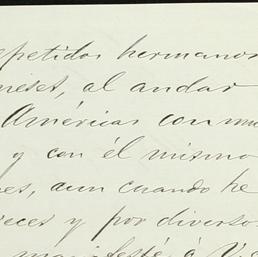 epetidos hermanos
meses, al andar
Américas con mu
y con él mismo
es, aun cuando he
veces y por diverso
manifesté á V.